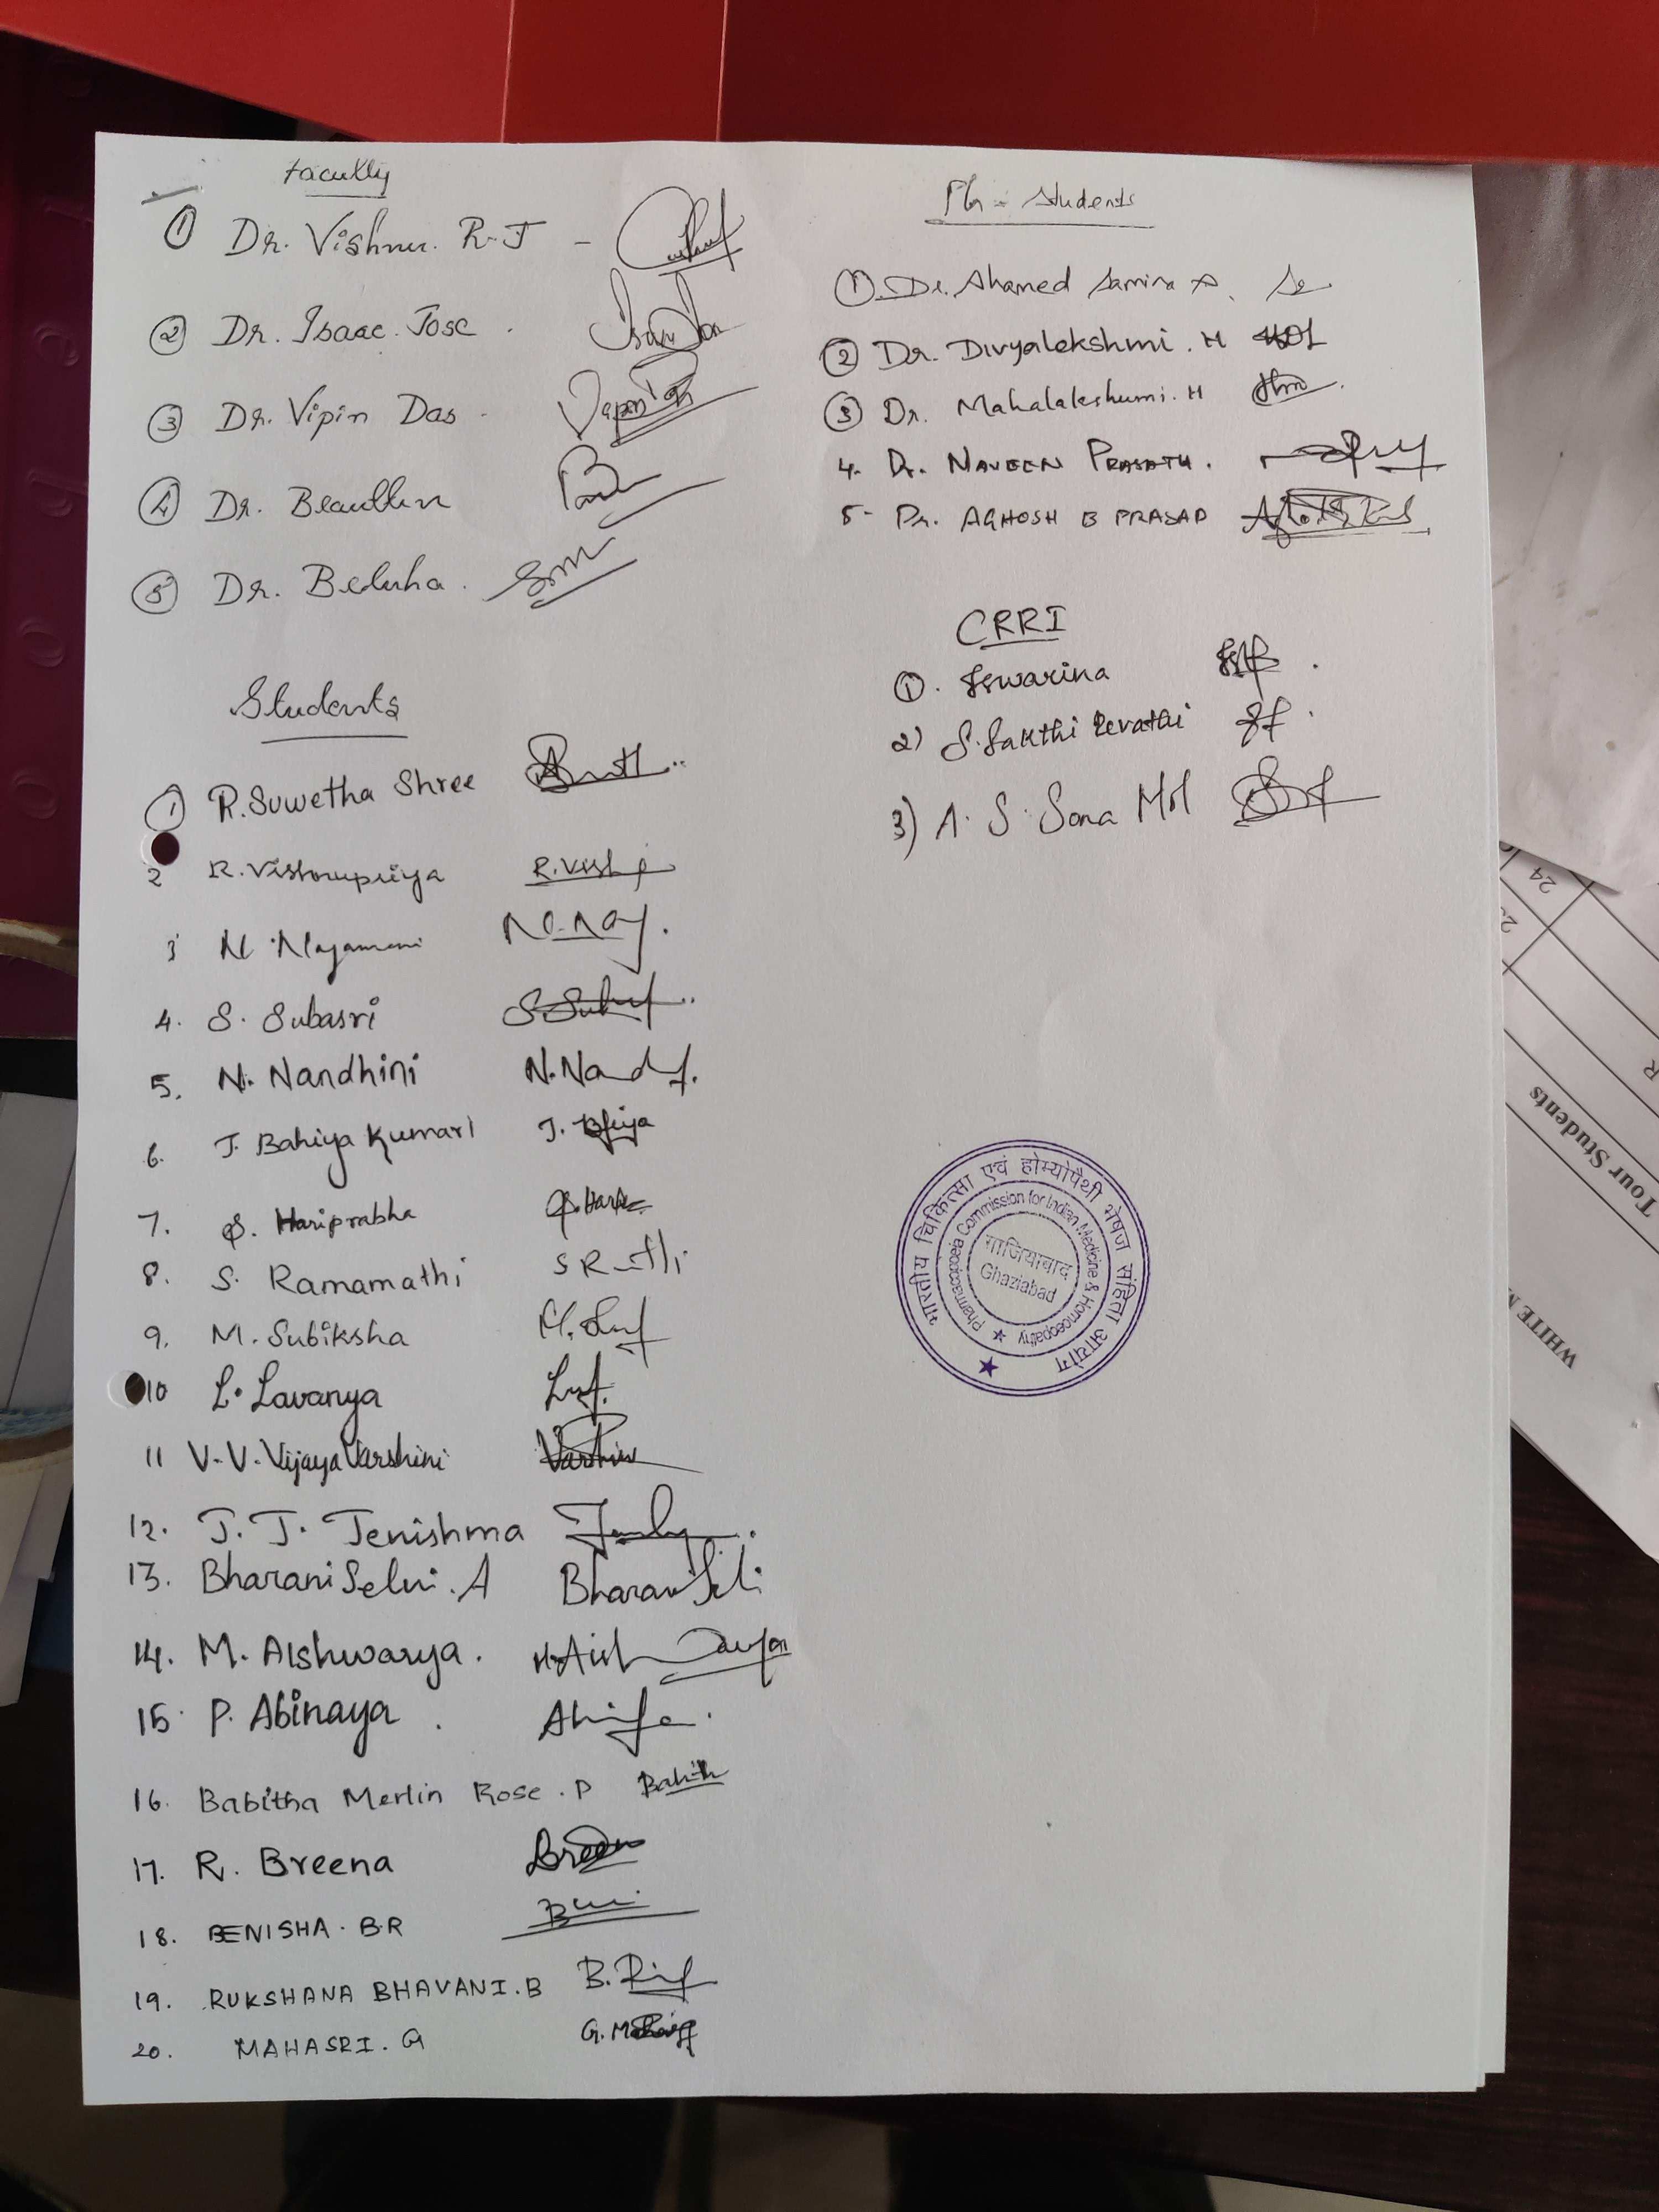 Faculty
① Dr. Vishnu. R.J -
② Dr. Isaac. Jose .
③ Dr. Vipin Das .
④ Dr.
⑤ Dr.
Students
① R.Suwetha Shree
2 R. Vishnupriya R.Vish
3 N.
4. S. Subasri
5. N. Nandhini N.Nand
6. J. Bahiya Kumari J.
7. S. Hariprabha
8. S. Ramamathi
9. M. Subiksha
10 L. Lavanya
11 V.V. Vijaya Varshini Varshini
12. J. J. Jenishma
13. Bharani Selvi. A
14. M. Aishwarya.
15. P. Abinaya .
16. Babitha Merlin Rose . P
17. R. Breena
18. BENISHA. B.R
19. RUKSHANA BHAVANI. B
20. MAHASRI. G
PG - Students
① Dr. Ahamed Samina A.
② Dr. Divyalekshmi. M
③ Dr. Mahalakshumi. H
4. Dr. NAVEEN PRASATH.
5- Dr. AGHOSH B PRASAD
CRRI
①. Iswarina
2) S. Sakthi Revathi
3) A. S. Sona Mol
भारतीय चिकित्सा एवं होम्योपैथी भेषज संहिता आयोग
Pharmacopoeia Commission for Indian Medicine & Homoeopathy
गाजियाबाद
Ghaziabad
24
R
Tour Students
WHITE